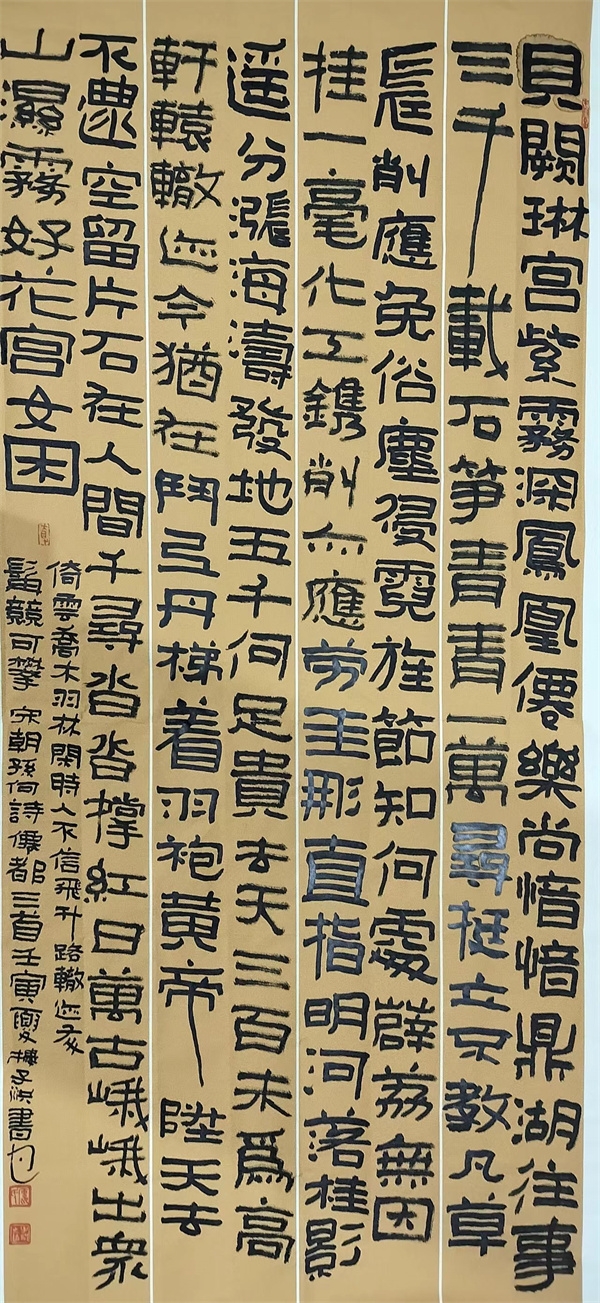 貝闕琳宮紫霧深鳳凰僊樂尚愔愔鼎湖往事
三千載石笋青青一萬尋挺立不教凡草
削應免俗塵侵霓旌節知何處薜荔無因
挂一毫化工鐫削亦應勞圭形直指明河落桂影
遥分漲海濤發地五千何足貴去天三百未爲高
軒轅轍迹今猶在鬥弓丹梯着羽袍黃帝陞天去
不還空留片石在人間千尋沓沓撐紅日萬古峨峨出衆
山濕霧好花宮女困
倚雲喬木羽林閑時人不信飛升路轍迹
髯競可攀宋朝孫何詩僊都三首壬寅夏子洪書